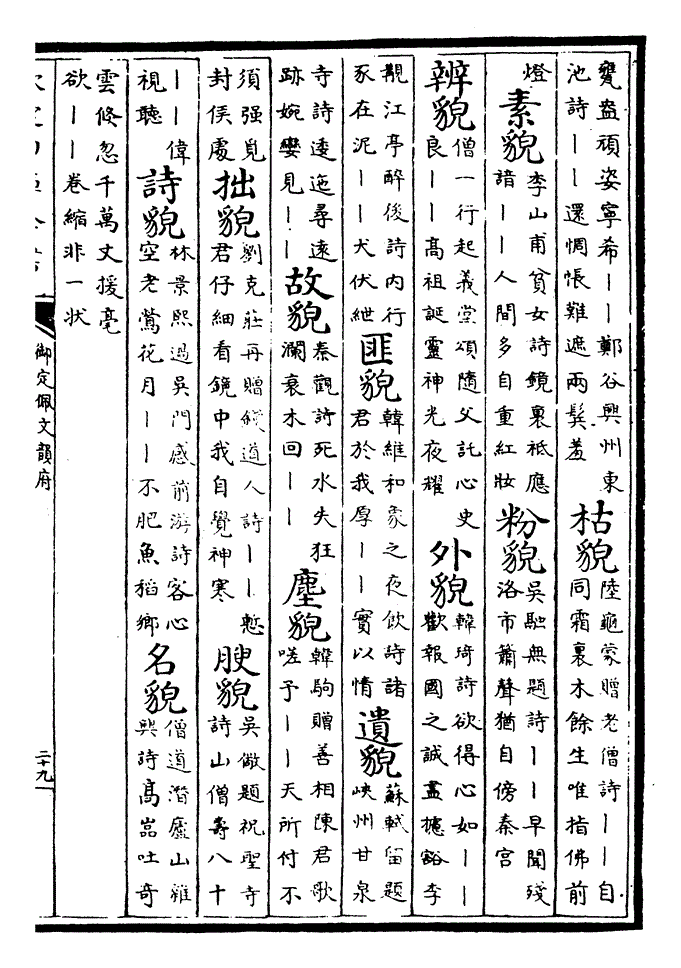 甕盎頑姿寧希丨丨鄭谷興州東
池詩丨丨還惆悵難遮兩鬂羞
枯貌
陸龜蒙贈老僧詩丨丨自
同霜裏木餘生唯指佛前
燈
素貌
李山甫貧女詩鏡裏祗應
諳丨丨人間多自重紅妝
粉貌
吳融無題詩丨丨早聞殘
洛市簫聲猶自傍秦宫
辨貌
僧一行起義堂頌隨父託心史
良丨丨高祖誕靈神光夜耀
外貌
韓琦詩欲得心如丨丨
歡報國之誠盡攄豁李
覯江亭醉後詩内行
豕在泥丨丨犬伏紲
匪貌
韓維和象之夜飲詩諸
君於我厚丨丨實以情
遺貌
蘇軾留題
峽州甘泉
寺詩逶迤尋遠
跡婉孌見丨丨
故貌
秦觀詩死水失狂
瀾衰木回丨丨
塵貌
韓駒贈善相陳君歌
嗟予丨丨天所付不
須强覓
封侯處
拙貌
劉克莊再贈錢道人詩丨丨慙
君仔細看鏡中我自覺神寒
腴貌
吳儆題祝聖寺
詩山僧壽八十
丨丨偉
視聽
詩貌
林景熙過吳門感前游詩客心
空老鶯花月丨丨不肥魚稻鄉
名貌
僧道潛廬山雜
興詩髙嵓吐奇
雲倏忽千萬丈援毫
欲丨丨卷縮非一状
御定佩文韻府
二十九